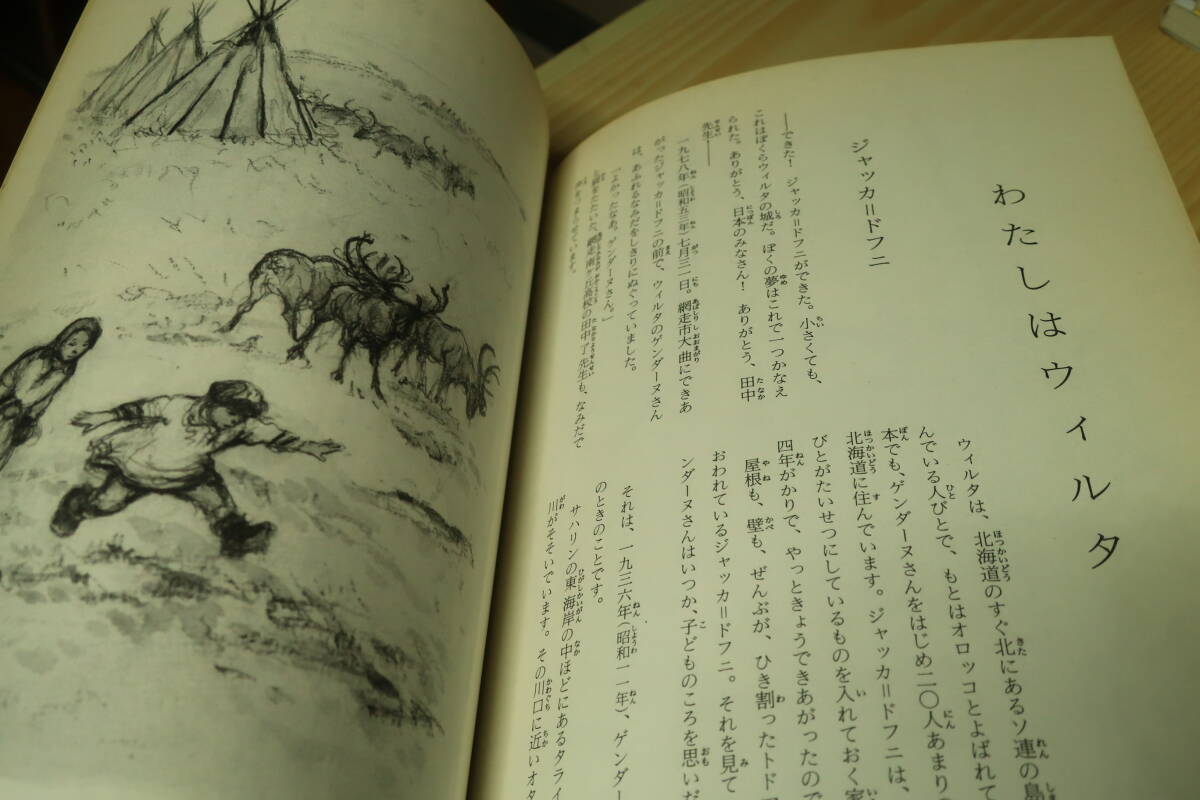 わたしはウィルタ
ジャッカ＝ドフニ
――できた！ ジャッカ＝ドフニができた。小さくても、
これはぼくらウィルタの城だ。ぼくの夢はこれで一つかなえ
られた。ありがとう、日本のみなさん！ ありがとう、田中
先生――
一九七八年（昭和五三年）七月三一日。網走市大曲にできあ
がったジャッカ＝ドフニの前で、ウィルタのゲンダーヌさん
は、あふれるなみだをしきりにぬぐっていました。
「よかったなあ。ゲンダーヌさん。」
肩をたたいた、網走南が丘高校の田中了先生も、なみだで
声をつまらせています。
ウィルタは、北海道のすぐ北にあるソ連の島
んでいる人びとで、もとはオロッコとよばれて
本でも、ゲンダーヌさんをはじめ二〇人あまりの
北海道に住んでいます。ジャッカ＝ドフニは、
びとがたいせつにしているものを入れておく家
四年がかりで、やっときょうできあがったので
屋根も、壁も、ぜんぶが、ひき割ったトド
おわれているジャッカ＝ドフニ。それを見て
ンダーヌさんはいつか、子どものころを思いだ
それは、一九三六年（昭和一一年）、ゲンダー
のときのことです。
サハリンの東海岸の中ほどにあるタライ
川がそそいでいます。その川口に近いオタ